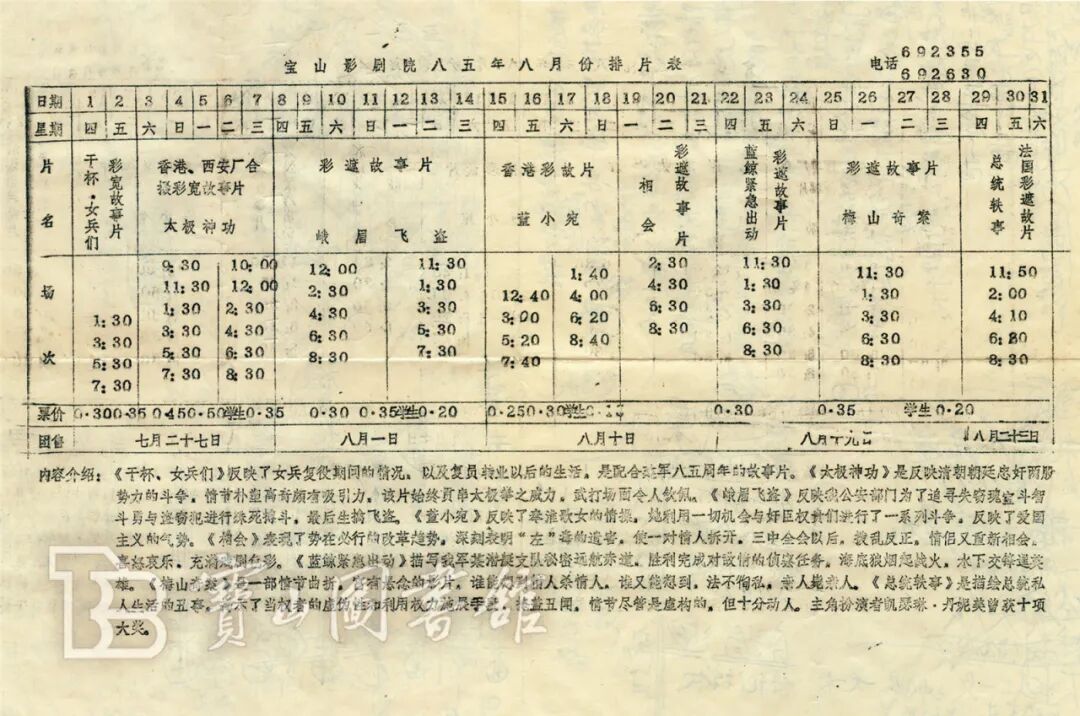 宝山影剧院八五年八月份排片表
电话 692355
692630
日期 1 2 3 4 5 6 7 8 9 10 11 12 13 14 15 16 17 18 19 20 21 22 23 24 25 26 27 28 29 30 31
星期 四 五 六 日 一 二 三 四 五 六 日 一 二 三 四 五 六 日 一 二 三 四 五 六 日 一 二 三 四 五 六
片名
干杯·女兵们
彩宽故事片
香港、西安厂合
摄彩宽故事片
太极神功
彩遮故事片
峨眉飞盗
香港彩故片
董小宛
相会
彩遮故事片
蓝鲸紧急出动
彩遮故事片
彩遮故事片
梅山奇案
总统轶事
法国彩遮故片
场次
1:30
3:30
5:30
7:30
9:30
11:30
1:30
3:30
5:30
7:30
10:00
12:00
2:30
4:30
6:30
8:30
12:00
2:30
4:30
6:30
8:30
11:30
1:30
3:30
5:30
7:30
12:40
3:00
5:20
7:40
1:40
4:00
6:20
8:40
2:30
4:30
6:30
8:30
11:30
1:30
3:30
6:30
8:30
11:30
1:30
3:30
6:30
8:30
11:50
2:00
4:10
6:20
8:30
票价 0.30 0.35 0.45 0.50 学生0.35 0.30 0.35 学生0.20 0.25 0.30 学生 0.30 0.35 学生0.20
团售 七月二十七日 八月一日 八月十日 八月十九日 八月二十三日
内容介绍：《干杯、女兵们》反映了女兵复役期间的情况，以及复员转业以后的生活，是配合建军八五周年的故事片。《太极神功》是反映清朝朝廷忠奸两股
势力的斗争，情节朴塑离奇颇有吸引力，该片始终贯串太极拳之威力，武打场面令人钦佩。《峨眉飞盗》反映我公安部门为了追寻失窃瑰宝斗智
斗勇与盗窃犯进行殊死搏斗，最后生擒飞盗。《董小宛》反映了秦淮歌女的情操，她利用一切机会与奸臣权贵们进行了一系列斗争，反映了爱国
主义的气势。《相会》表现了势在必行的改革趋势，深刻表明“左”毒的遗害，使一对情人拆开，三中全会以后，拨乱反正，情侣又重新相会。
喜怒哀乐，充满期间。《蓝鲸紧急出动》描写我军某潜艇支队秘密远航赤道，胜利完成对敌情的侦察任务，海底狼烟起战火，水下交锋逞英
雄。《梅山奇案》是一部情节曲折，富有悬念的影片，谁能知情人杀情人，谁又能想到，法不徇私，亲人擒亲人。《总统轶事》是描绘总统私
人生活的丑事，揭示了当权者的虚伪性和利用权力施展手段，掩盖丑闻，情节尽管是虚构的，但十分动人。主角扮演者凯瑟琳·丹妮芙曾获十项
大奖。
寶山圖書館